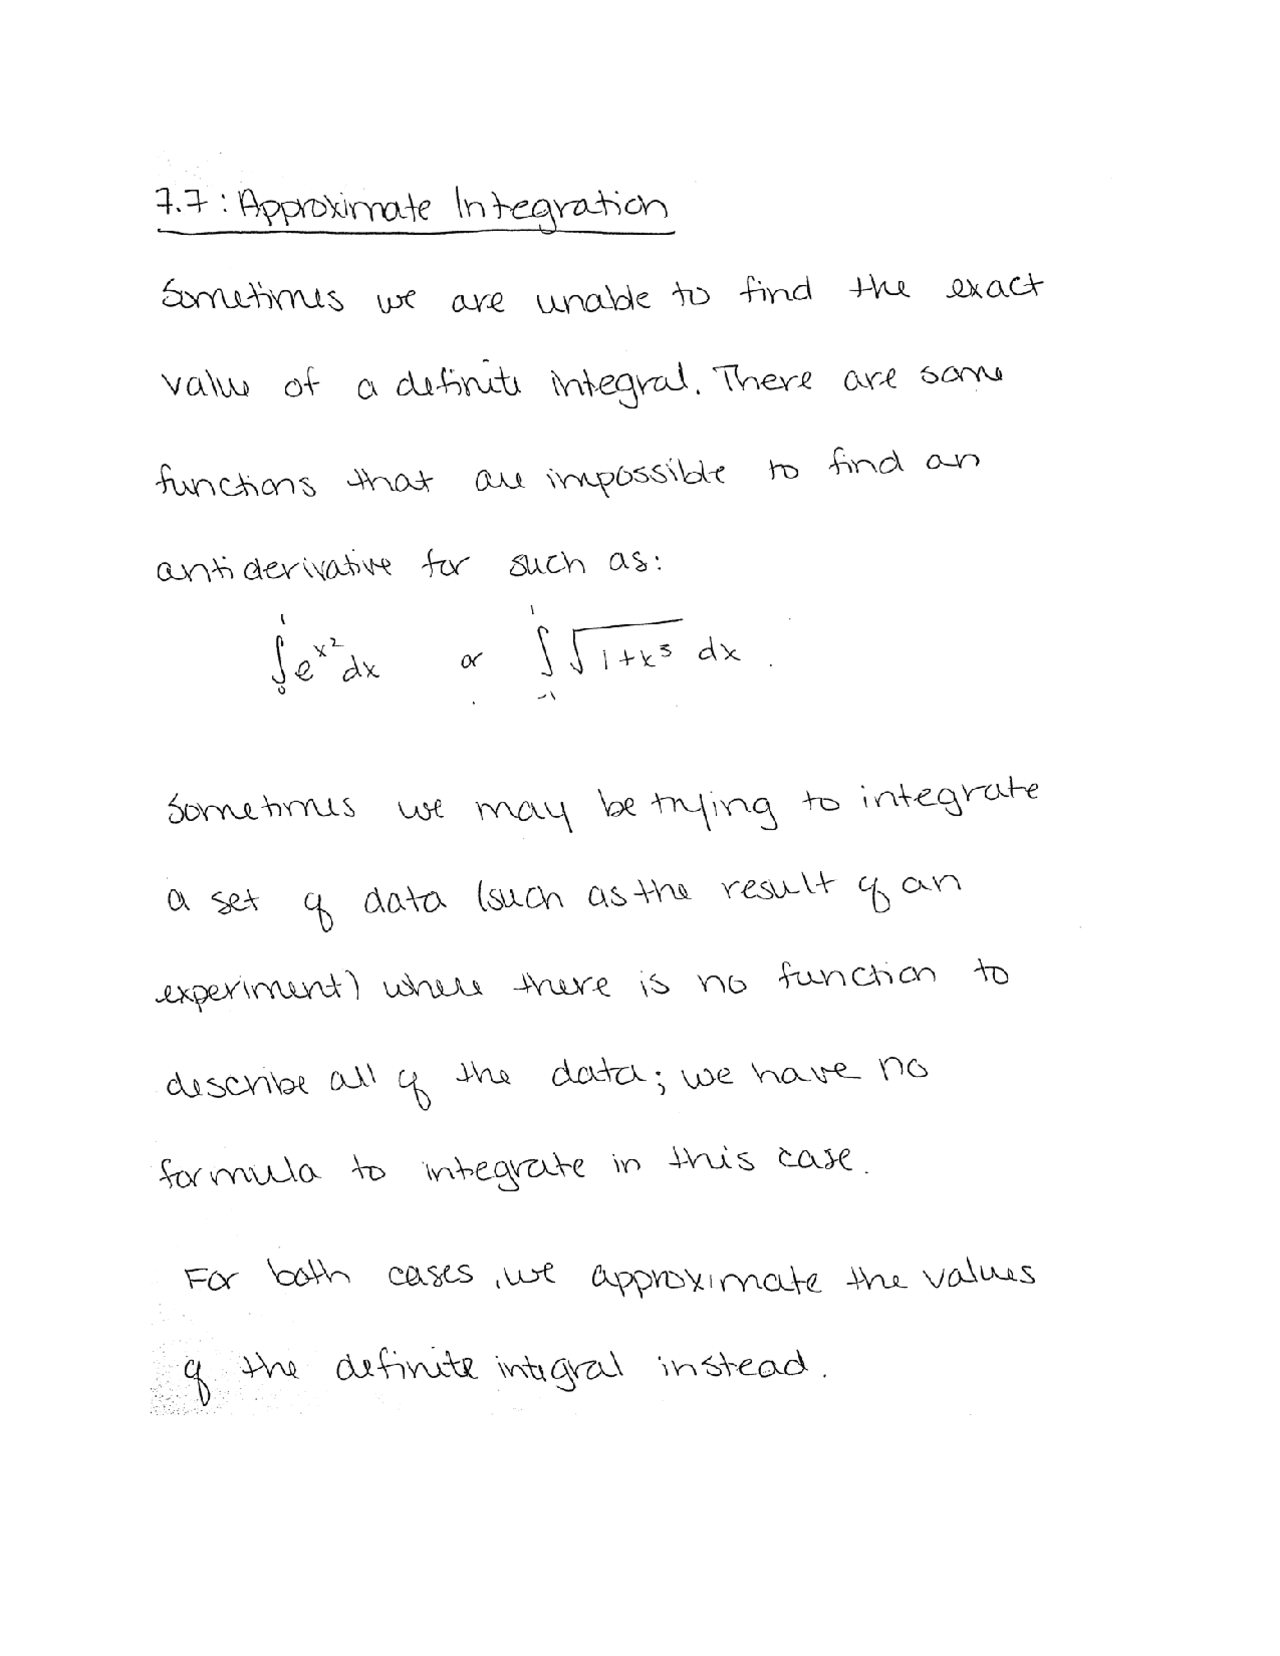 7.7: Approximate Integration
Sometimes we are unable to find the exact
value of a definite integral. There are some
functions that are impossible to find an
antiderivative for such as:
∫₀¹ e^{x²} dx or ∫₋₁¹ √(1+x³) dx.
Sometimes we may be trying to integrate
a set of data (such as the result of an
experiment) where there is no function to
describe all of the data; we have no
formula to integrate in this case.
For both cases, we approximate the values
of the definite integral instead.